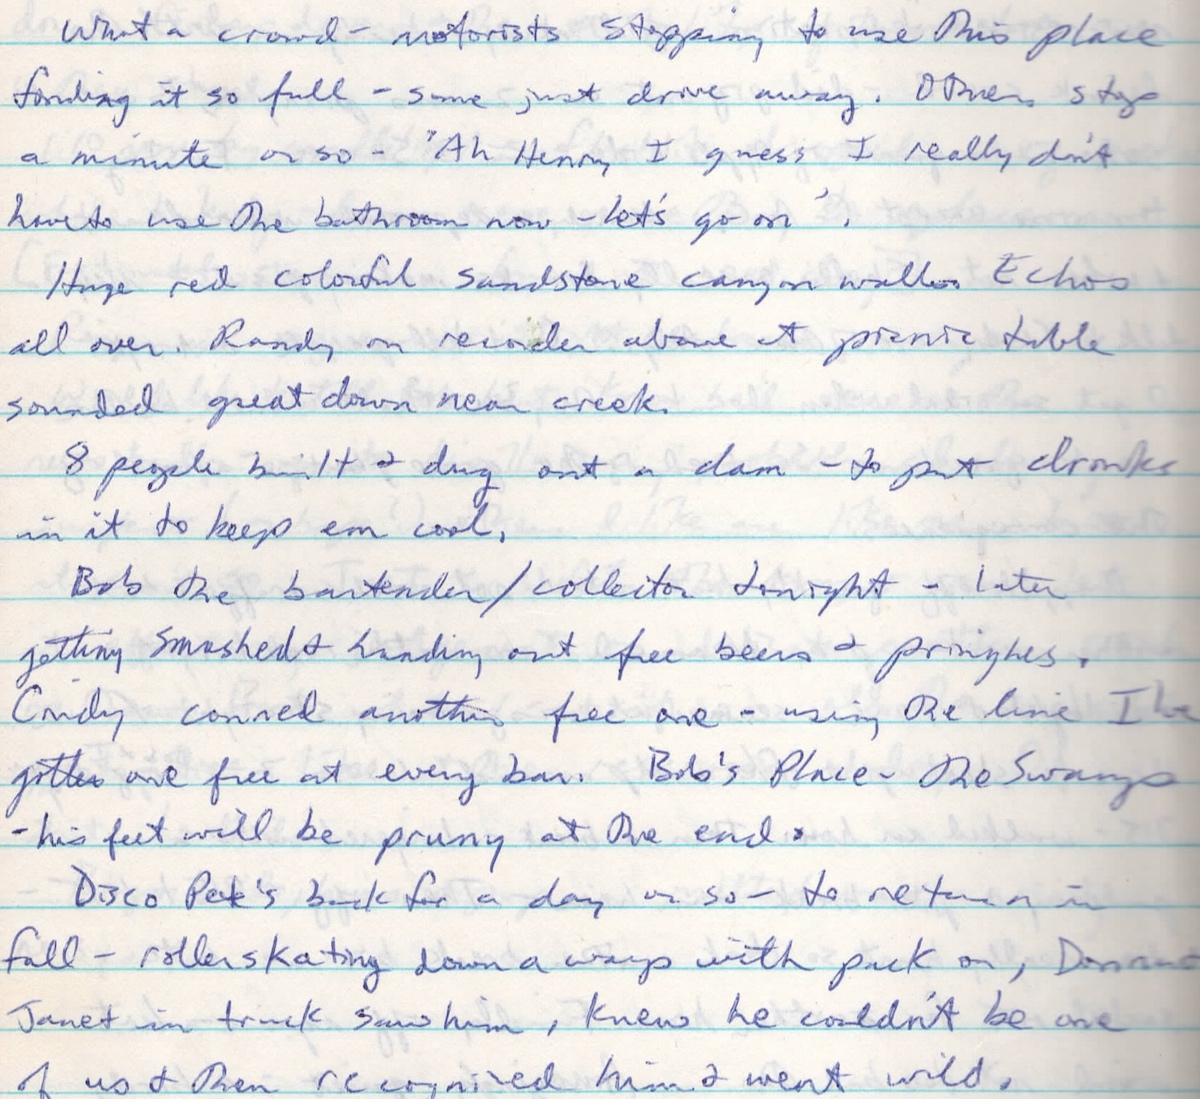 What a crowd - motorists stopping to use this place
finding it so full - some just drive away. Others stop
a minute or so - "Ah Henry I guess I really don't
have to use the bathroom now - let's go on".
Huge red colorful sandstone canyon walls. Echos
all over. Randy on recorder above at picnic table
sounded great down near creek.
8 people built & dug out a dam - to put drinks
in it to keep em cool.
Bob the bartender/collector tonight - later
getting smashed & handing out free beers & pringles.
Cindy conned another free one - using the line I've
gotten one free at every bar. Bob's Place - the Swamp
- his feet will be pruny at the end.
Disco Pete's back for a day or so - to return in
fall - rollerskating down a ways with pack on,
Janet in truck saw him, knew he couldn't be one
of us & then recognized him & went wild.